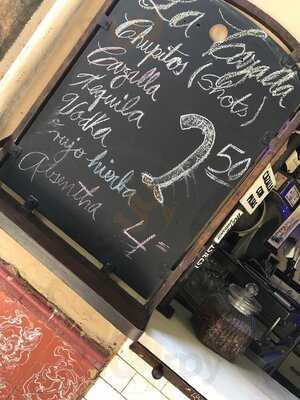 La Cazalla
Chupitos (shots)
Cazalla
Tequila
Vodka
Orujo hierba
Absentha
2'50
4€